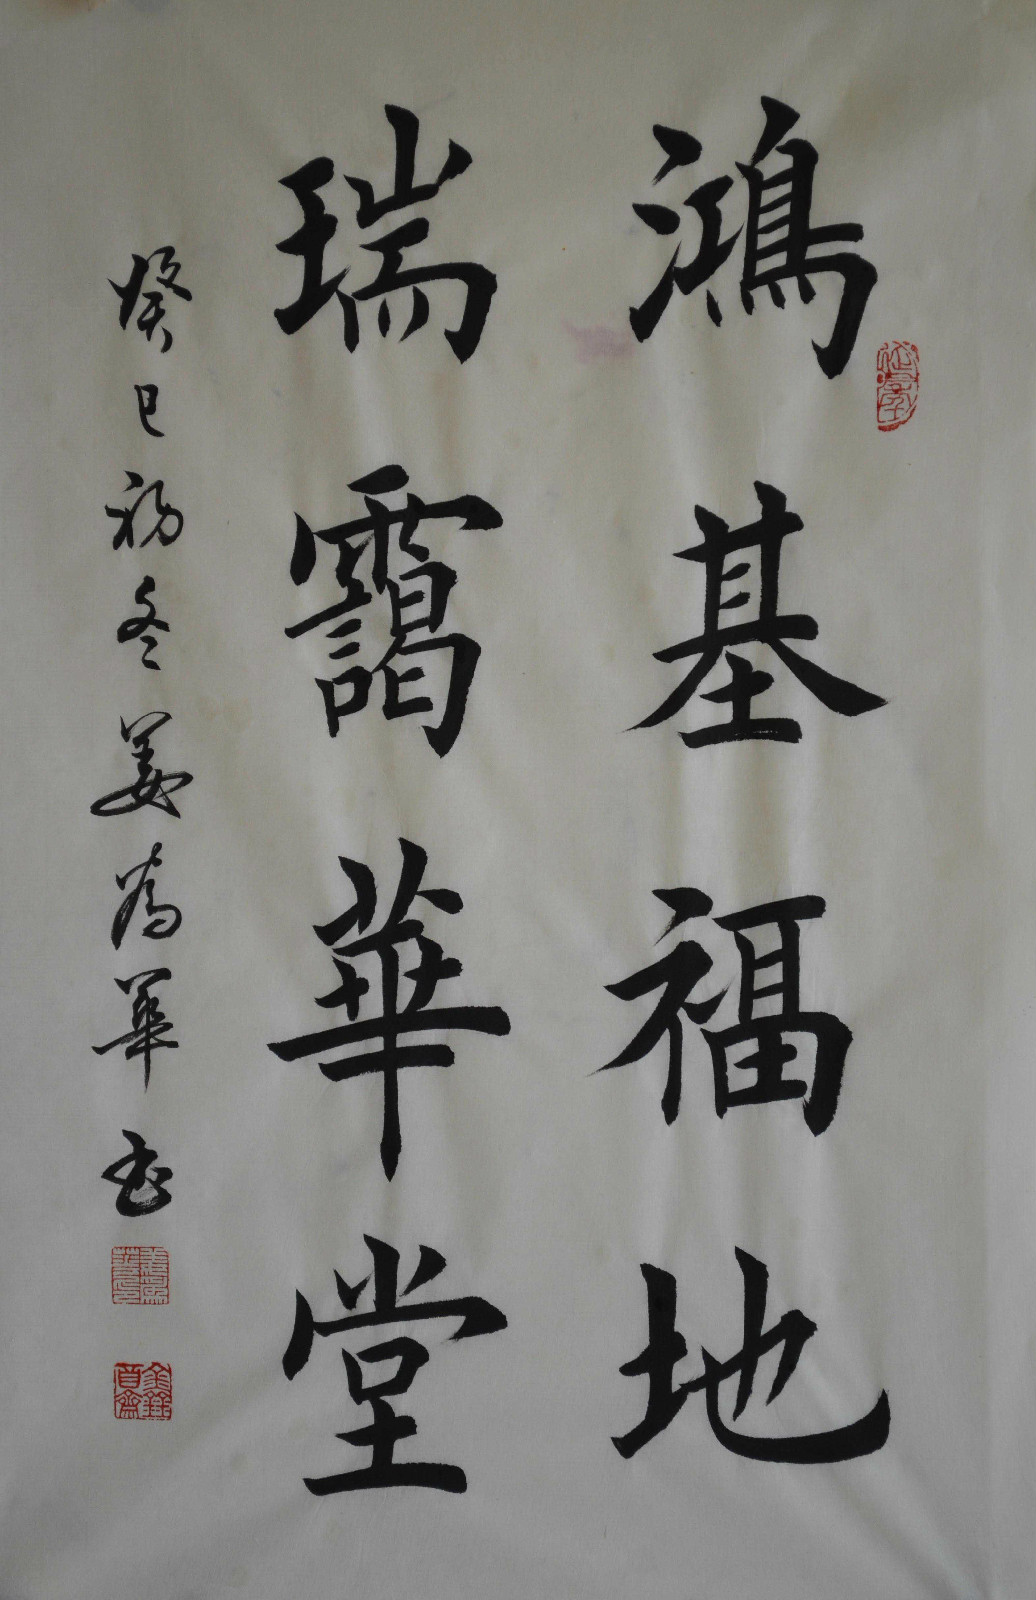 鴻基福地
瑞靄華堂
癸巳初冬姜為華書